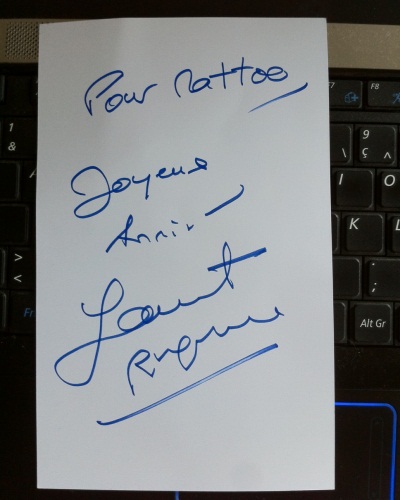 Pour Mattoo
Joyeux
Anniv
Laurent
Ruquier
1
&
F7
F8
9
ç ^
\
I
O
K
L
>
<
:
;
Fn
Alt Gr